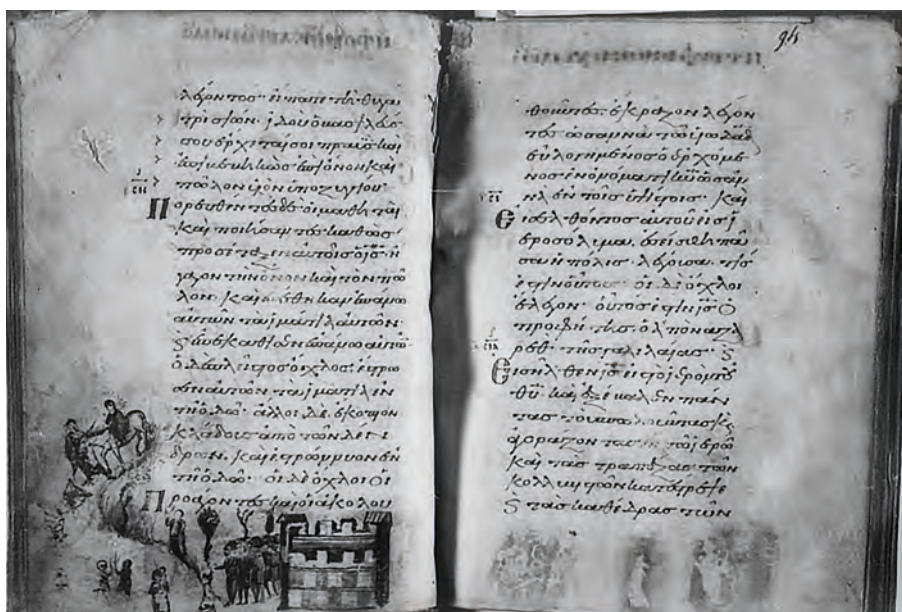 λέγοντος· εἴπατε τῇ θυγα
τρὶ σιών· ἰδοὺ ὁ βασιλεύς
σου ἔρχεταί σοι πραῢς καὶ
ἐπιβεβηκὼς ἐπὶ ὄνον καὶ
πῶλον υἱὸν ὑποζυγίου·
Πορευθέντες δὲ οἱ μαθηταὶ
καὶ ποιήσαντες καθὼς
προσέταξεν αὐτοῖς ὁ ις· ἤ
γαγον τὴν ὄνον καὶ τὸν πῶ
λον· καὶ ἐπέθηκαν ἐπάνω
αὐτῶν τὰ ἱμάτια αὐτῶν·
ϗ ἐπεκάθισεν ἐπάνω αὐτῶν
Ὁ δὲ πλεῖστος ὄχλος· ἔστρω
σαν αὐτῶν τὰ ἱμάτια ἐν
τῇ ὁδῷ· ἄλλοι δὲ ἔκοπτον
κλάδους ἀπὸ τῶν δέν
δρων, καὶ ἐστρώννυον ἐν
τῇ ὁδῷ· οἱ δὲ ὄχλοι οἱ
Προάγοντες καὶ οἱ ἀκολου
θοῦντες· ἔκραζον λέγον
τες ὡσαννὰ τῷ υἱῷ δαδ
εὐλογημένος ὁ ἐρχόμε
νος ἐν ὀνόματι κυ ὡσαν
νὰ ἐν τοῖς ὑψίστοις· Καὶ
Εἰσελθόντος αὐτοῦ εἰς ἱ
εροσόλυμα, ἐσείσθη πᾶ
σα ἡ πόλις λέγουσα· τίς
ἐστιν οὗτος· οἱ δὲ ὄχλοι
ἔλεγον· οὗτός ἐστιν ις ὁ
προφήτης· ὁ ἀπὸ ναζα
ρὲθ· τῆς γαλιλαίας· ϗ
Εἰσῆλθεν ις εἰς τὸ ἱερὸν τοῦ
θυ· καὶ ἐξέβαλεν πάν
τας τοὺς πωλοῦντας ϗ
ἀγοράζοντας ἐν τῷ ἱερῷ
καὶ τὰς τραπέζας τῶν
κολλυβιστῶν κατέστρεψε
ϗ τὰς καθέδρας τῶν